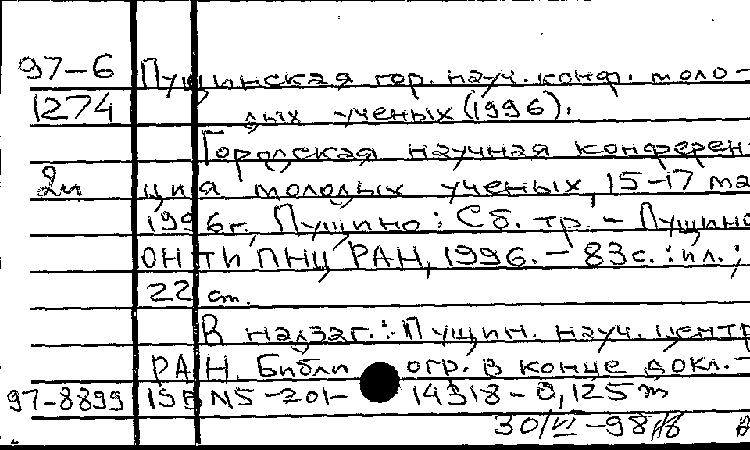 97-6 Пущинская гор. науч. конф. моло-
1274 дых ученых (1996).
Городская научная конферен-
2и ция молодых ученых, 15-17 мая
1996г., Пущино: Сб. тр. - Пущино
ОНТИ ПНЦ РАН, 1996. - 83с.: ил.;
22 см.
В надзаг.: Пущин. науч. центр
РАН. Библиогр. в конце докл. -
97-8899 ISBN 5-201-14318-0, 125 т
30/VI-98